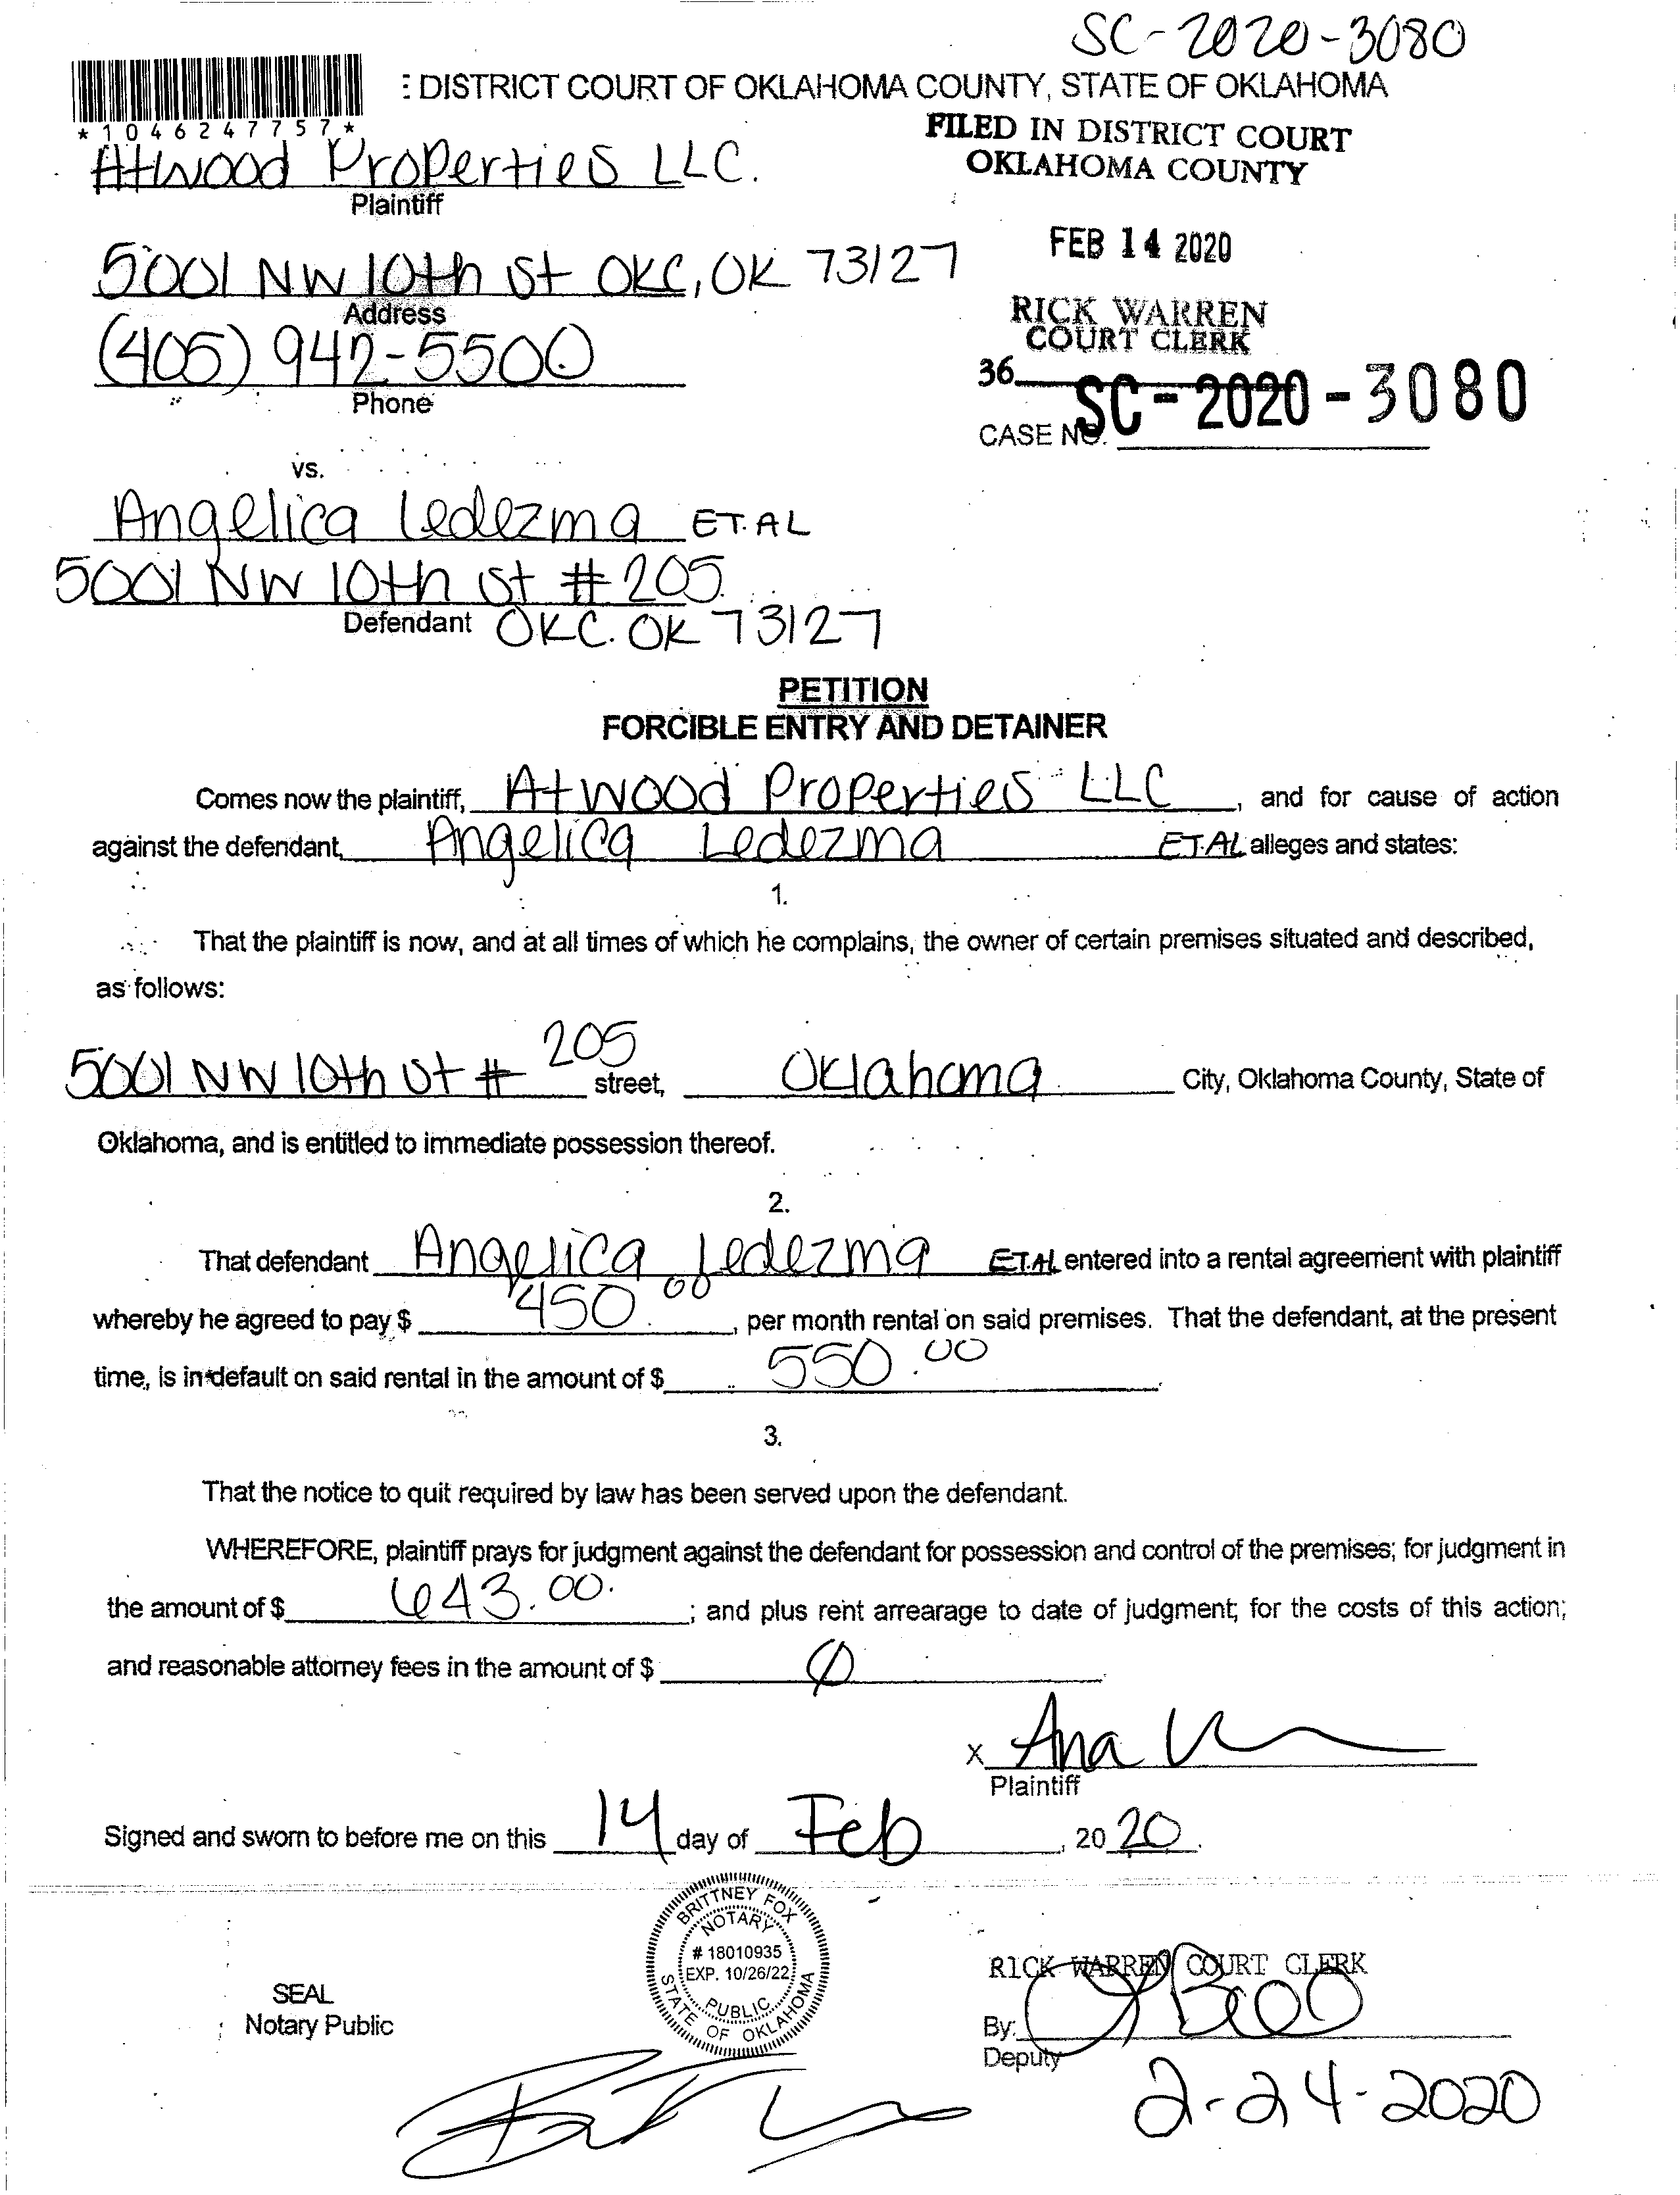 SC-2020-3080
: DISTRICT COURT OF OKLAHOMA COUNTY, STATE OF OKLAHOMA
*1046247757*
FILED IN DISTRICT COURT
OKLAHOMA COUNTY
Atwood Properties LLC.
Plaintiff
FEB 14 2020
5001 NW 10th St OKC, OK 73127
Address
RICK WARREN
COURT CLERK
(405) 942-5500
Phone
36
CASE NO. SC-2020-3080
vs.
Angelica Ledezma ET.AL
5001 NW 10th St # 205
Defendant OKC. OK 73127
PETITION
FORCIBLE ENTRY AND DETAINER
Comes now the plaintiff, Atwood Properties LLC, and for cause of action
against the defendant, Angelica Ledezma ET.AL alleges and states:
1.
That the plaintiff is now, and at all times of which he complains, the owner of certain premises situated and described,
as follows:
5001 NW 10th St # 205 street, Oklahoma City, Oklahoma County, State of
Oklahoma, and is entitled to immediate possession thereof.
2.
That defendant Angelica Ledezma ET.AL entered into a rental agreement with plaintiff
whereby he agreed to pay $ 450.00, per month rental on said premises. That the defendant, at the present
time, is in default on said rental in the amount of $ 550.00.
3.
That the notice to quit required by law has been served upon the defendant.
WHEREFORE, plaintiff prays for judgment against the defendant for possession and control of the premises; for judgment in
the amount of $ 643.00.; and plus rent arrearage to date of judgment; for the costs of this action;
and reasonable attorney fees in the amount of $ 0.
x Ana
Plaintiff
Signed and sworn to before me on this 14 day of Feb, 2020.
BRITTNEY FOX
NOTARY
# 18010935
EXP. 10/26/22
PUBLIC
STATE OF OKLAHOMA
SEAL
Notary Public
RICK WARREN COURT CLERK
By:
Deputy
2-24-2020